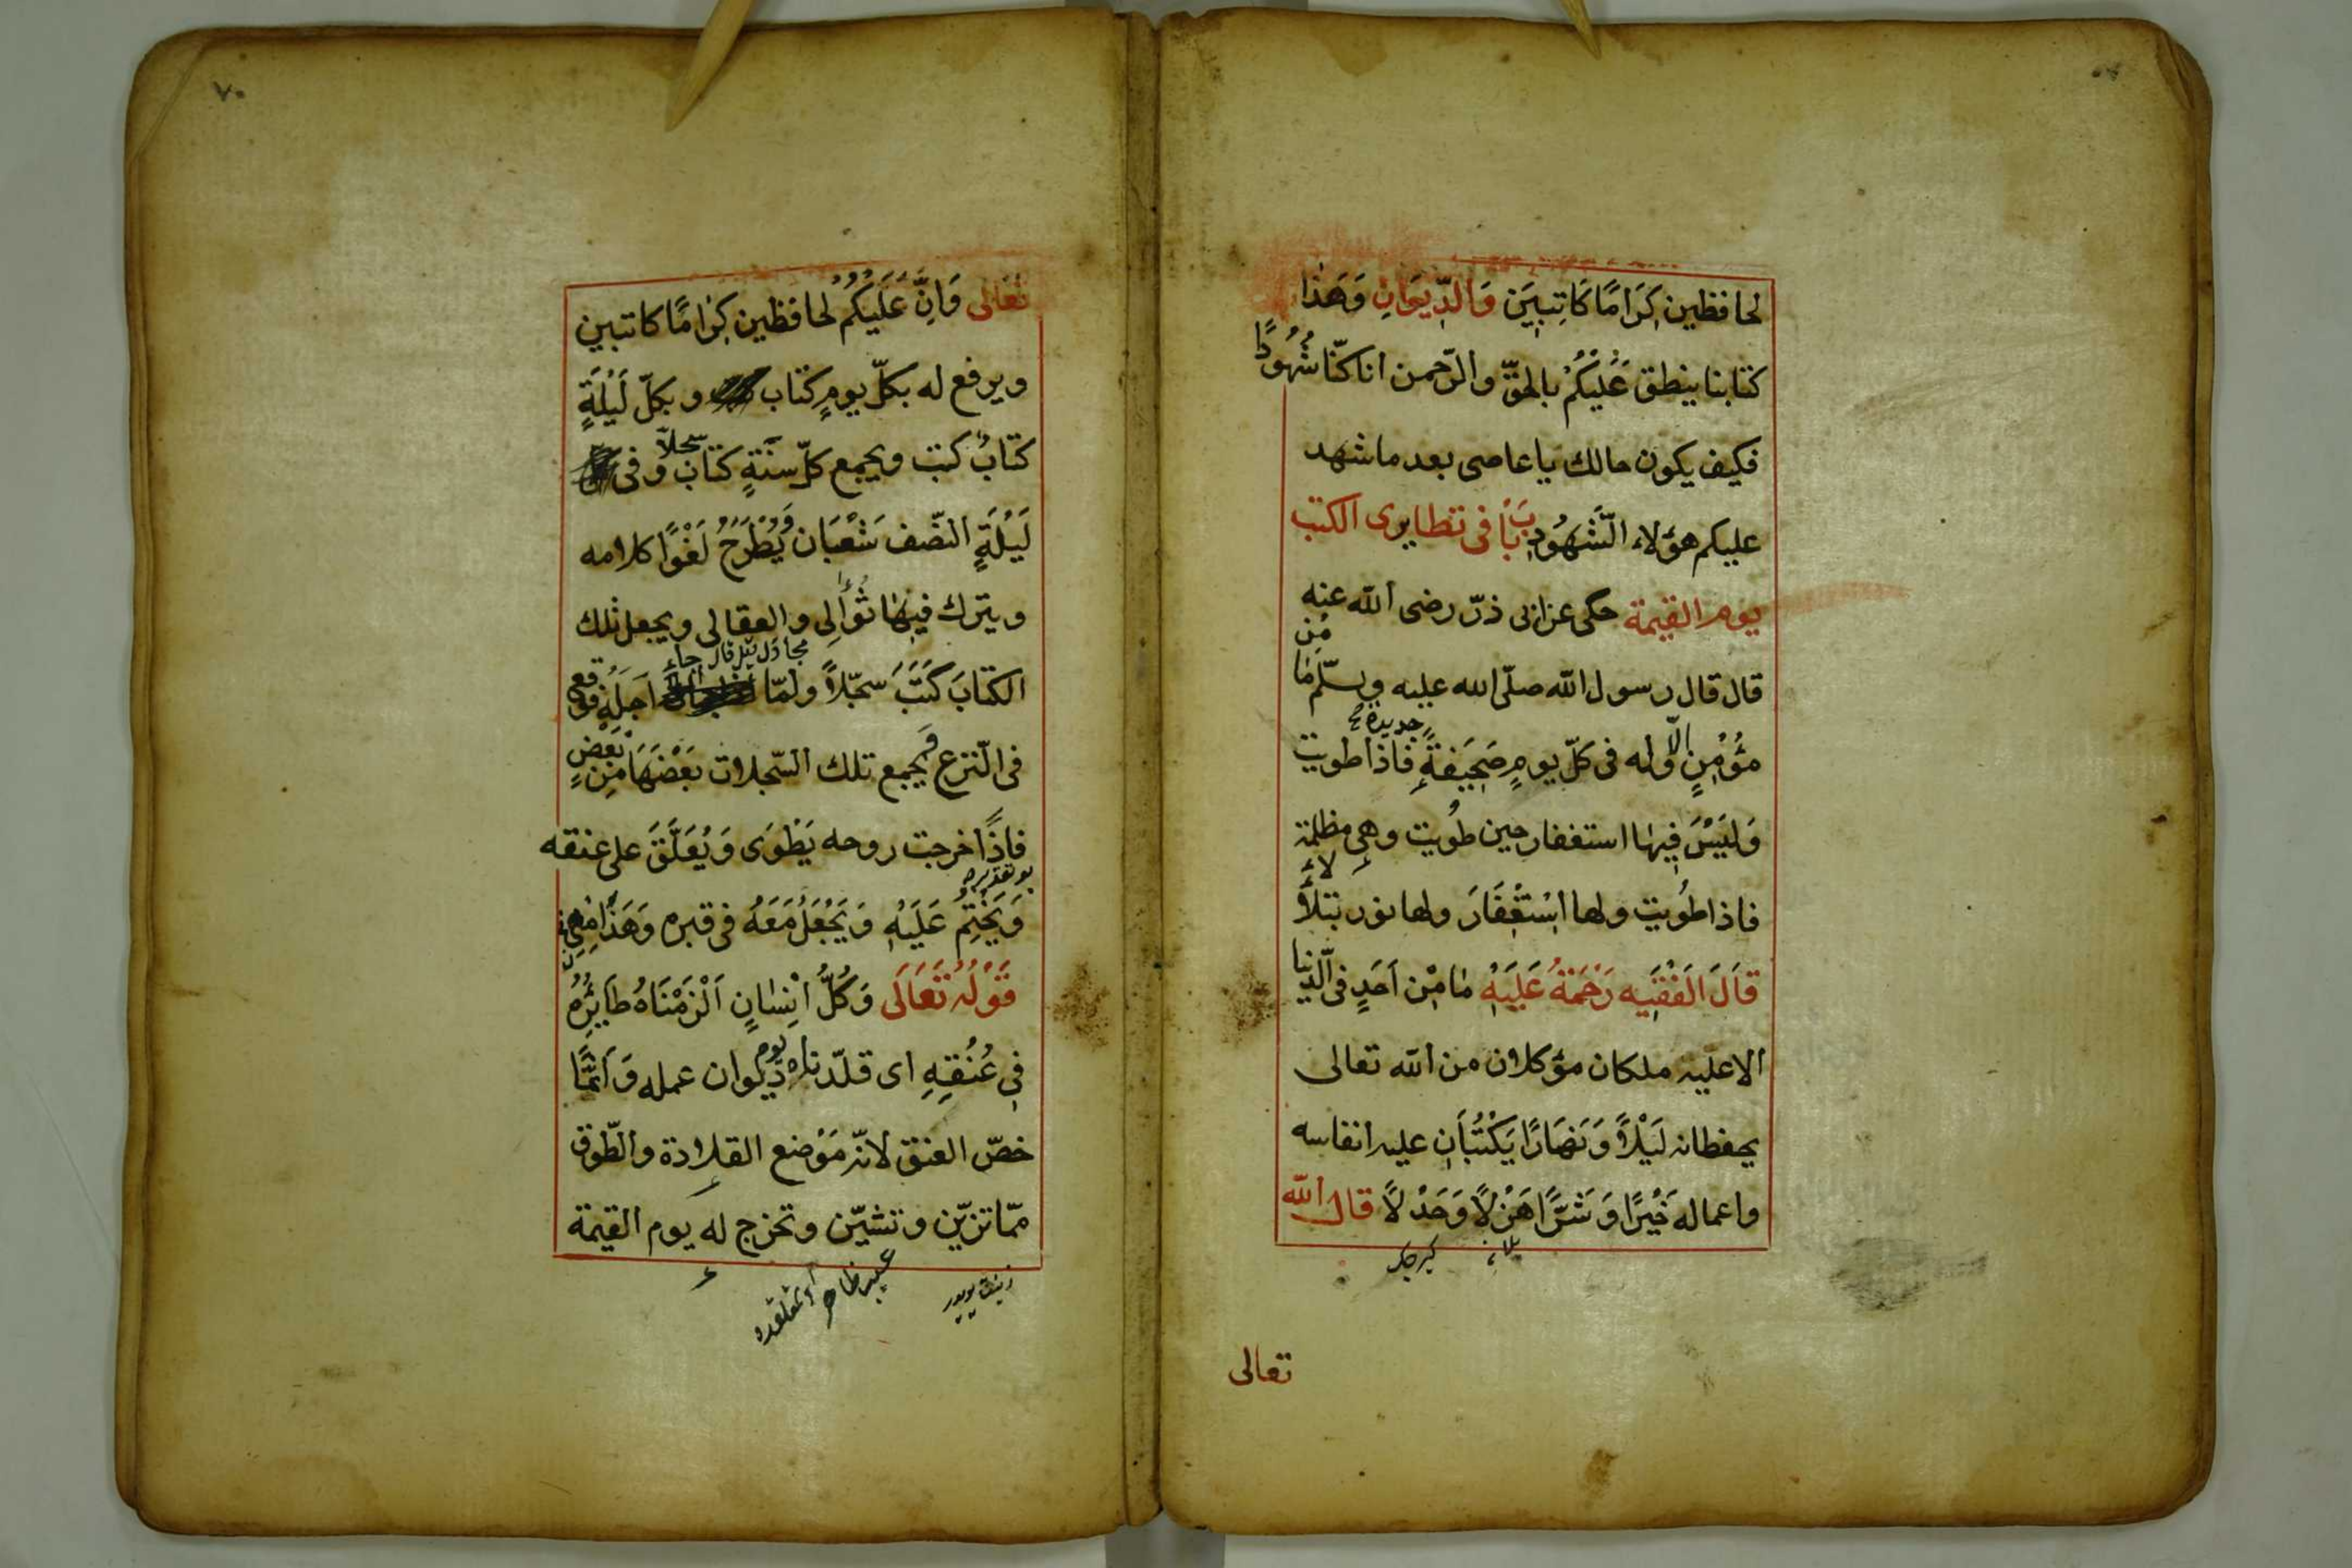 لحافظين كِرَامًا كَاتِبِيَن وَالدِّيوَانِ وَهَذٰا
كتابنا ينطق عَلَيْكُمْ بالحقّ والرّحمن انا كنّا شُهُودًا
فكيف يكون حالك يا عاصى بعد ما شهد
عليكم هؤلاء الشَّهُودِ بَابٌ فى تطايرى الكتب
يوم القيمة حكى عن ابى ذرّ رضى الله عنه
قال قال رسول الله صلّى الله عليه وسلّم مٰا مِن
مؤْمِنٍ الّا وله فى كلّ يومٍ صَحِيَفةٍ جديدة فاذا طويت
وَلَيْسَ فِيهٰا استغفار حين طُويت وهى مظلمة
فاذا طُويت ولها اسْتِغْفَارَ ولها نور يتلاٴلاٴ
قَالَ الَفْقَيِه رَحْمَةُ عَلَيَهْ مٰا مِنْ اَحَدٍ فى الدّنيا
الا عليه ملكان مؤكلان من الله تعالى
يحفطانه لَيْلاً وَنَهَارًا يَكْتُبَاَنِ عليه انفاسه
واعماله خَيْرًا وَشَرًّا هَزْلاً وَحَدْ لاً قال الله
كيرجك
تعالى
٧٠
تعَالى وَاِنَّ عَلَيَكُمْ لحافظين كِرٰامًا كاتبين
ويرفع له بكلّ يومٍ كتاب وبكلّ لَيْلَةٍ
كتابٌ كبت ويجمع كلّ سنَةٍ كتاب سجلاّ وفى
لَيْلَةٍ النّصف شَعْبَان وَيُطْرَحُ لَغْوًا كلامه
ويترك فيهٰا ثوَاٴلِى والعقالى ويجعل تلك
الكتابَ كَتَبَ سجّلاً ولمّا جاء اَجَلُهِ وقع
فى النّزع فيجمع تلك السّجلات بَعْضَهَا مِن بَعْضٍ
فاذًا خرجت روحه يَطْوَى وَيُعَلَّقَ على عنقه
وَيَخْتِمُ عَلَيَهْ وَيَجْعَلُ مَعَهُ فى قبره وَهَذٰا معنى
قَوْلُهُ تَعَالَى وَكُلُّ اِنْسٰانٍ اَلْزَمْنَاهُ طَايِرُهُ
فِى عُنُقِهِ اى قلّدناه ديوان عمله وَاَنمَّا
خصّ العنق لانّه مَوْضع القلادة والطّوق
ممّا تزيّن وتشيّن وتخرج له يوم القيمة